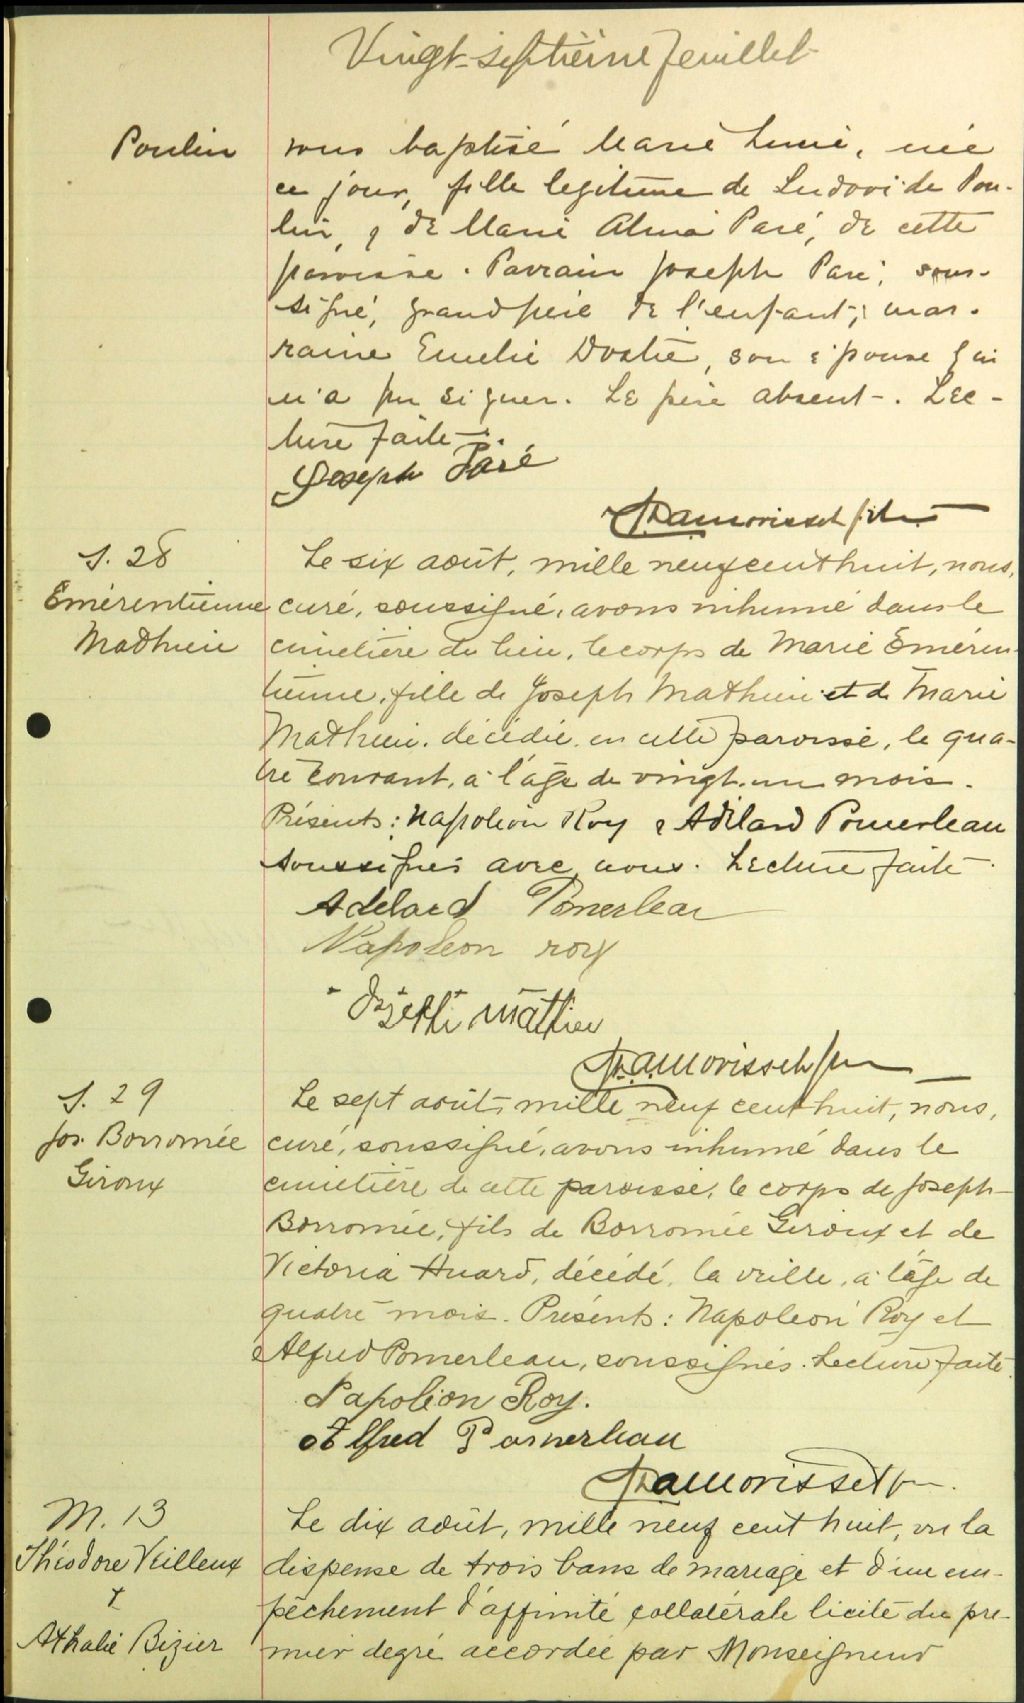 Vingt-septième feuillet
Poulin
vons baptisé Marie Lucie, née
ce jour, fille legitime de Ludovi de Pou-
lin, & de Marie Alma Paré, de cette
paroisse. Parrain Joseph Paré, sous-
signé, grand père de l'enfant; mar-
raine Emelie Dostie, son épouse qui
n'a pu signer. Le père absent. Lec-
ture faite.
Joseph Paré
S. 28
Emérentienne
Mathieu
Le six août, mille neuf cent huit, nous,
curé, soussigné, avons inhumé dans le
cimetière du lieu, le corps de Marie Eméren-
tienne, fille de Joseph Mathieu et de Marie
Mathieu, décédée, en cette paroisse, le qua-
tre courant, à l'âge de vingt-un mois.
Présents: Napoléon Roy & Adélard Pomerleau
soussignés avec nous. Lecture faite.
Adelard Pomerleau
Napoleon roy
Joseph Mathieu
S. 29
Jos. Borromée
Giroux
Le sept août, mille neuf cent huit, nous,
curé, soussigné, avons inhumé dans le
cimetière de cette paroisse, le corps de Joseph-
Borromée, fils de Borromée Giroux et de
Victoria Huard, décédé, la veille, à l'âge de
quatre mois. Présents: Napoléon Roy et
Alfred Pomerleau, soussignés. Lecture faite.
Napoléon Roy.
Alfred Pomerleau
M. 13
Théodore Veilleux
&
Athalie Bizier
Le dix août, mille neuf cent huit, vu la
dispense de trois bans de mariage et d'un em-
pêchement d'affinité collatérale licite du pre-
mier degré accordée par Monseigneur